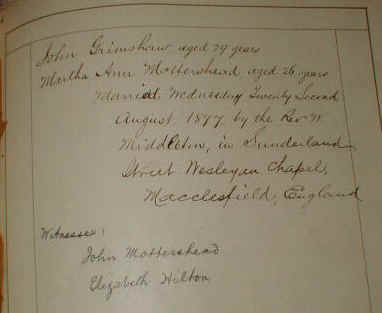 John Grimshaw aged 29 years
Martha Ann Mottershead aged 26 years
Maried, Wednesday Twenty Second
August 1877, by the Rev W.
Middleton, in Sunderland
Street Wesleyan Chapel,
Macclesfield, England
Witnesses:
John Mottershead
Elizabeth Hilton